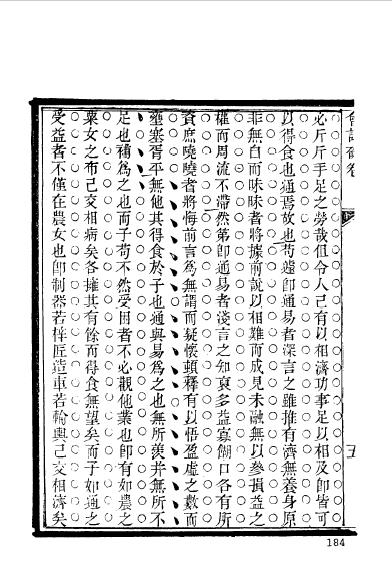 必斤斤手足之勞哉但令人己有以相濟功事足以相及即皆可
以得食也通焉故也苟虛即通易者深言之雖推有濟無養身原
非無自而昧昧者將據前說以相難而成見未融無以參損益之
權而周流不滯然第即通易者淺言之知裒多益寡餬口各有所
資庶曉曉者將悔前言為無謂而疑懷頓釋有以悟盈虛之數而
壅塞胥平無他其得食於子也通與易為之也無所羨并無所不
足也補為之也而子苟不然受困者不必觀他業也即有如農之
粟女之布己交相病矣各擁其有餘而得食無望矣而子如通之
受益者不僅在農女也即制器若梓匠造車若輪輿己交相濟矣
184